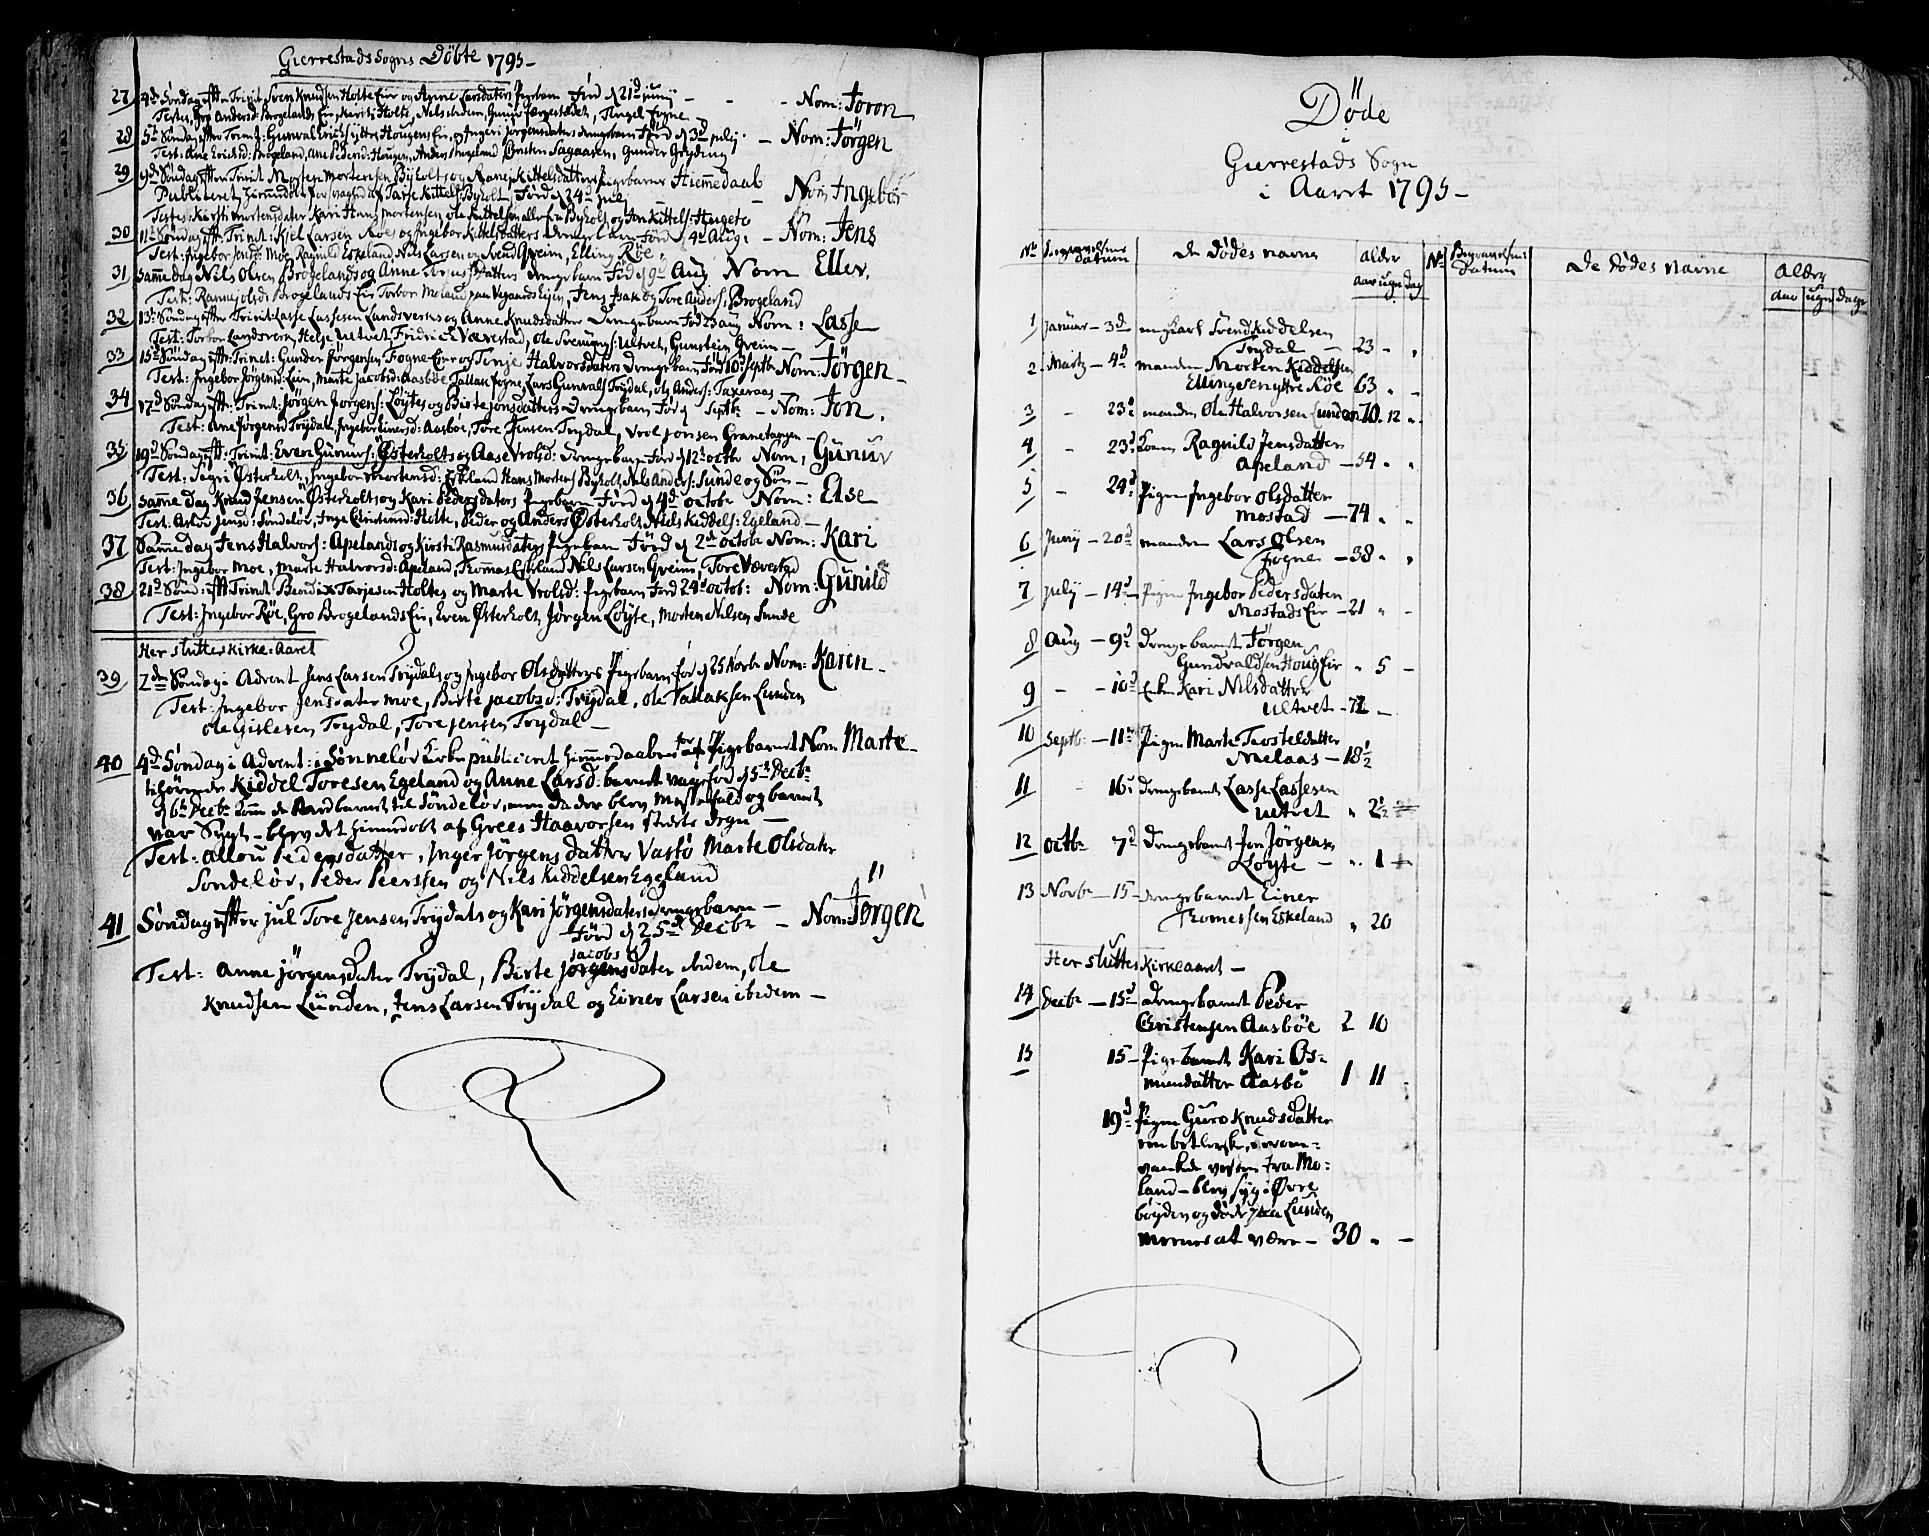 Gierrestads Sogns Døbte 1795 –
27 4de Søndag efter Trinit: Sven Knudsen Holte Eie og Anne Larsdatters Pigebarn Fød d 21d Juny – – – Nom: Joron
Testes, Gro Andersd: Brogelands Eie, Karisti Holte, Nels ibidem, Gunur Færgestedet, Tengel Fogne
28 5te Søndag efter Trinit: Gunval Erichs: ytre Hougens Eie, og Ingeri Jørgensdaters drengebarn Fød d 3d july – Nom: Jørgen
Test: Ane Erichsd: Brogeland, Ane Pedersd: Hougen, Anders Brogeland Torsten Sagaasen, Gunder Gryting
29 9de Søndag efter Trinit: Morten Mortensen Byholts og Kittelsdatters Pigebarns Hiemmedaab
Publiceret Tarje Kittels: Byholt, Fød d 24d july – Nom: Ingebor
Testes: Kirsti Mortensdater Kari Hans Mortensen ole Kittelsen alle fra Byholt og Jon Kittels: Haugeto
30 11te Søndag eft: Trinit: Kiel Larsen Røes og Ingebor Kittelsdatters drengebarn Fød d 4d Aug: – Nom: Jens
Test: Ingebor Jensd: Moe, Ragnild Eskeland, Nils Larsen og Svend Qveim, Elling Røe
31 Samme dag Nils Olsen Brogelands og Anne datters drengebarn Fød d 9d Aug Nom Ellev.
Test: Ranne olsd: Brogelands Eie Torbor Moland paa Vegaards Eyen, Jens Isak og Tore Anders: Brogeland
32 13de Søndag efter Trinit: Lasse Lassesen Landsverks og Anne Knudsdatter Drengebarn Fød 23 aug Nom: Lasse
Test: Torbor Landsverk, Helje Ultvet Fridrick Værestad, Ole Svennings: Ultvet, Gunstein Qveim –
33 15de Søndag eft: Trinit: Gunder Jørgensen Fogne Eier og Tenje Halvorsdaters Drengebarn Fød 10d Septbr Nom: Jørgen –
Test: Ingebor Jørgensd: Lien, Marte Jacobsd: Aasbøe, Tallak Fogne, Lars Gunvals: Trydal, ole Anders: Taxeraas
34 17de Søndag eft: Trinit: Jørgen Jørgens: Løytes og Birte Jonsdatters Drengebarn Fød d Septbr – Nom: Jon.
Test: Ane Jørgensd Trydal, Ingebor Einersd: Aasbøe, Tore Jensen Trydal, Vrol Jonsen Granetangen –
35 19de Søndag eft: Trinit: Even Gunurs: Østerholts og Aase Vrolsd: drengebarn Fød d 12te octbr Nom, Gunuv
Test: Sigri Østerholt, Ingebor Mortensd: Eskeland Hans Mortens: Byholt, Nils Anders: Sunde og Søn –
36 Samme Dag Knud Jensen Østerholts og Kari Pedersdaters Pigebarn – Fød d 4d octobr Nom: Else
Test: Aslov Jensd: Søndeløv, Inge Christensd: Holte, Peder og Anders Østerholt Niels Kiddels: Egeland –
37 Samme dag Jens Halvors: Apelands og Kirsti Rasmusdaters Pigebarn Fød d 2d octobr Nom: Kari
Test: Ingebor Moe, Marte Halvorsd: Apeland, Thommas Eskeland Nils Larsen Qveim, Tore Værestad
38 21d Sønd: eft Trinit Bendix Tarjesen Holtes og Marte Vrolsd: Pigebarn Fød 24d octob: Nom: Gunild
Test: Ingebor Røe, Gro Brogelands Eie, Even Østerholt Jørgen Løyte, Morten Nilsen Sunde
Her slutter Kirke-Aaret
39 2den Søndag i Advent Jens Larsen Trydals og Ingebor Olsdatters Pigebarn fød d 25 Novbr Nom: Karen –
Test: Ingebor Jensdater Moe, Birte Jacobsd: Trydal, ole Tallaksen Lunden
ole Gislesen Trydal, Tore Jensen Trydal –
40 4de Søndag i Advent: i Sønneløv Kirke publiceret Hiemmedaaben for et Pigebarnet Nom Marte –
tilhørende Kiddel Toresen Egeland og Anne Larsd: barnet var fød d 5te Decbr
d 6te Decbr komm de med barnet til Søndeløv, men da der blev Messefald og barnet
var Sygt – blev det hiemmedøbt af Grees Haavorsen stedets Degn –
Test: Allou Pedersdatter, Inger Jørgens datter Vasbø Marte Olsdater
Sondeløv, Peder Peersten og Nils Kiddelsen Egeland
41 Søndag efter jul Tore Jensen Trydals og Kari Jørgensdaters drengebarn –
Fød d 25de Decbr – Nom: Jørgen
Test: Anne Jørgensdater Trydal, Birte Jacobs dater ibidem, ole
Knudsen Lunden, Jens Larsen Trydal og Einer Larsen ibidem –
Døde
i
Gierrestads Sogn
i Aaret 1795 –
No Begravelsens Datum De Dødes navne Alder No Begravelsens Datum De Dødes navne Alder
aar uger dag aar uger dage
1 Januar – 3d ungkarl Svend Kiddelsen
Trydal – 23 „ „
2 Martz – 4d manden Morten Kiddelsen
Ellingsen yttre Røe 63 „ –
3 – 23d manden Ole Halvorsen Lunden 70 „ 12 „
4 – 23d Konen Ragnild Jensdatter
Apeland – 54 „ „
5 – 24d Pigen Ingebor Olsdatter
Mostad – 74 „ „
6 Juny – 20d manden Lars Olsen
Fogne – 38 „ „
7 july – 14d Pigen Ingebor Pedersdaten
Mostads Eie – 21 „ –
8 Aug – 9d drengebarnet Jørgen
Gundvaldsen Houg Eie „ 5 –
9 – – 10d Enken Kari Nilsdatter
Ultvet – 72 –
10 Septb: – 11te Pigen Marte Terkelsdatter
Melaas – 18½
11 – 16d drengebarnet Lasse Lassesen
Ultvet „ 2½
12 octbr 7d drengebarnet Jon Jørgens
Løyte – „ 1
13 Novbr – 15 – drengebarnet Einer
Thomessen Eskeland „ 20
Her slutter Kirkeaaret –
14 Decbr – 15d drengebarnet Peder
Christensen Aasbøe 2 10
15 15 – Pigebarnet Kari Os=
mundatter Aasbø 1 11
19d Pigen Guro Knudsdatter
em betlerske, som om=
vankede vesten fra Mo=
land – blev syg i Øvre
bøyden og døde paa Lunden
meenes at være – 30 „ –